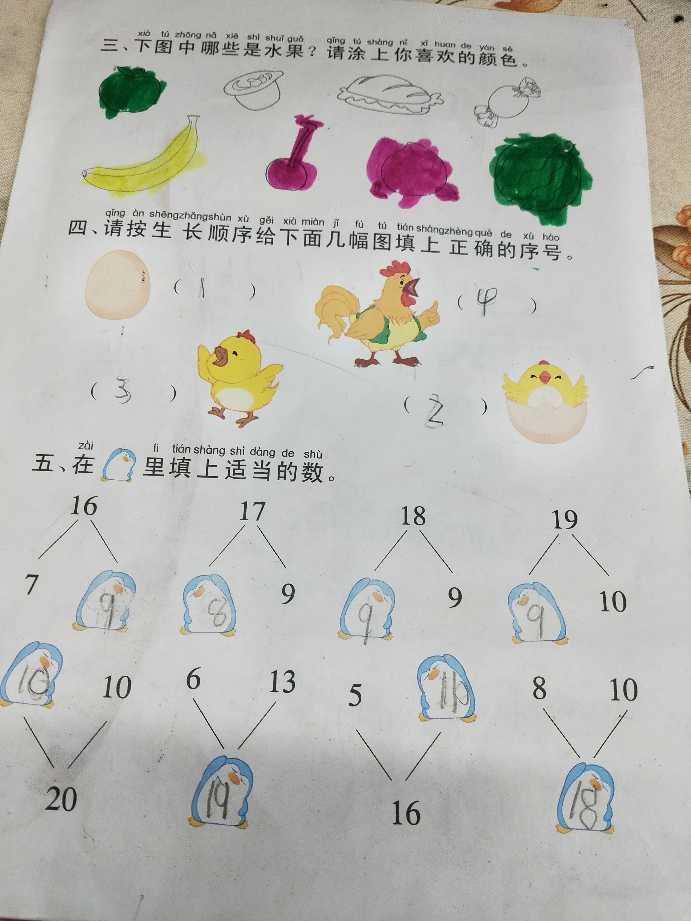 xià tú zhōng nǎ xiē shì shuǐ guǒ qǐng tú shàng nǐ xǐ huan de yán sè
三、下图中哪些是水果？请涂上你喜欢的颜色。
qǐng àn shēng zhǎng shùn xù gěi xià miàn jǐ fú tú tián shàng zhèng què de xù hào
四、请按生长顺序给下面几幅图填上正确的序号。
（1） （4）
（3） （2）
zài li tián shàng shì dàng de shù
五、在 里填上适当的数。
16 17 18 19
7 9 8 9 9 9 9 10
10 10 6 13 5 11 8 10
20 19 16 18